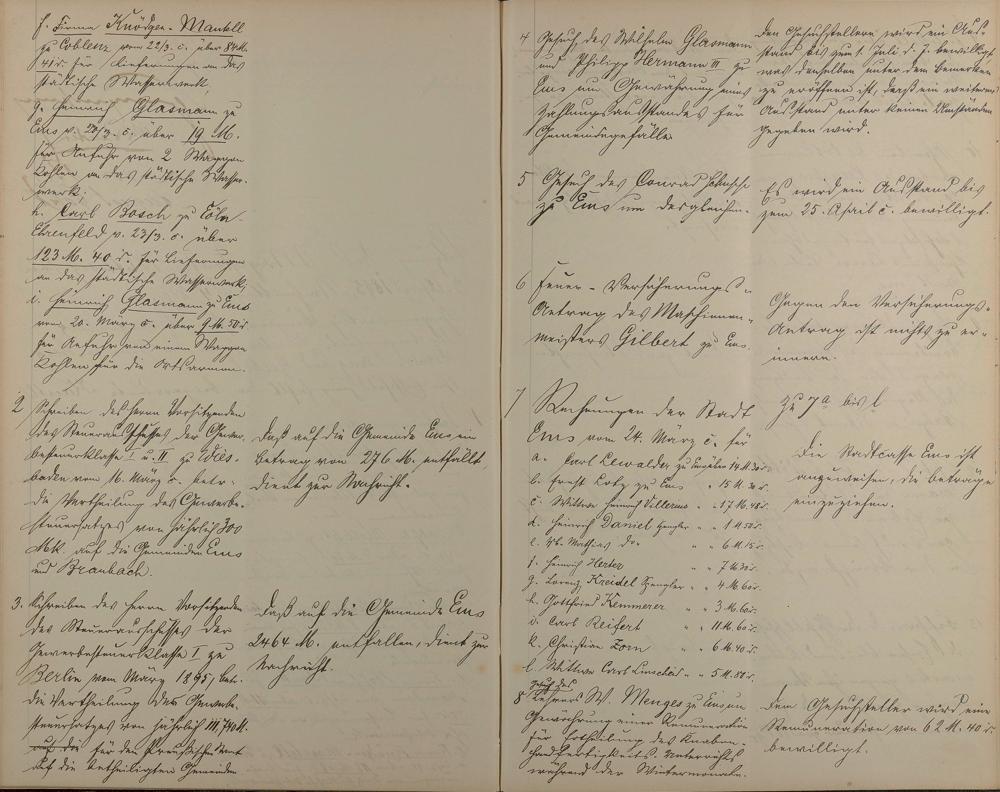 f. Firma Knödgen-Mantell
zu Coblenz vom 22/3. c. über 84 M.
41 d. für Lieferungen an das
städtische Wasserwerk.
g. Heinrich Glasmann zu
Ems v. 20/3. c. über 19 M.
für Anfuhr von 2 Waggon
Kohlen an das städtische Wasser-
werk.
h. Carl Bosch zu Cöln
Ehrenfeld v. 23/3. c. über
123 M. 40 d. für Lieferungen
an das städtische Wasserwerk,
i. Heinrich Glasmann zu Ems
vom 20. März c. über 9 M. 50 d
für Anfuhr von einem Waggon
Kohlen für die Ortsarmen.
2 Schreiben des Herrn Vorsitzenden
des Steuerausschusses der Gewer-
besteuerklasse I u. II zu Wies-
baden vom 16. März c. betr.
die Vertheilung des Gewerbe-
steuersatzes von jährlich 300
Mk. auf die Gemeinden Ems
und Braubach.
Daß auf die Gemeinde Ems ein
Betrag von 276 M. entfällt,
dient zur Nachricht.
3. Schreiben des Herrn Vorsitzenden
des Steuerausschusses der
Gewerbesteuerklasse I zu
Berlin vom März 1895, betr.
die Vertheilung des Gewerbe-
steuersatzes von jährlich
auf die für den
auf die betheiligten Gemeinden
Daß auf die Gemeinde Ems
2464 M. entfallen, dient zur
Nachricht.
4 Gesuch des Wilhelm Glasmann
und Philipp Hermann III zu
Ems um Gewährung eines
Zahlungsausstandes für
Gemeindegefälle
Den Gesuchstellern wird ein Aus-
stand bis zum 1. Juli d. J. bewilligt,
was denselben unter dem Bemerken
zu eröffnen ist, daß ein weiterer
Ausstand unter keinen Umständen
gegeben wird.
5 Gesuch des Conrad
zu Ems um desgleichen.
Es wird ein Ausstand bis
zum 25. April c. bewilligt.
6 Feuer-Versicherungs-
Antrag des Maschinen-
meisters Gilbert zu Ems.
Gegen den Versicherungs-
Antrag ist nichts zu er-
innern.
7 Rechnungen der Stadt
Ems vom 24. März c. für
a. Carl Lewalder zu Ems über 14 M. 30 d.
b. Ernst Lotz zu Ems " 15 M. 30 d.
c. Wittwe Heinrich " " 17 M. 48 d.
d. Heinrich Daniel " " 1 M. 50 d.
e. Wb. Mathias do " " 6 M. 15 d.
f. Heinrich Herter " " 7 M. 30 d.
g. Lorenz Kreidel Spengler " " 4 M. 60 d.
h. Gottfried Kemmerer " " 3 M. 60 d.
i. Carl Reifert " " 11 M. 60 d.
k. Christian Zorn " " 6 M. 40 d.
l. Wittwe Carl Linscheid " " 5 M. 88 d.
Zu 7a bis l
Die Stadtcasse Ems ist
anzuweisen, die Beträge
einzuziehen.
Gesuch des
8 Lehrers W. Menges zu Ems um
Gewährung einer Remuneration
für Ertheilung des Knaben-
handfertigkeits-Unterrichts
während der Wintermonate.
Dem Gesuchsteller wird eine
Remuneration von 62 M. 40 d.
bewilligt.